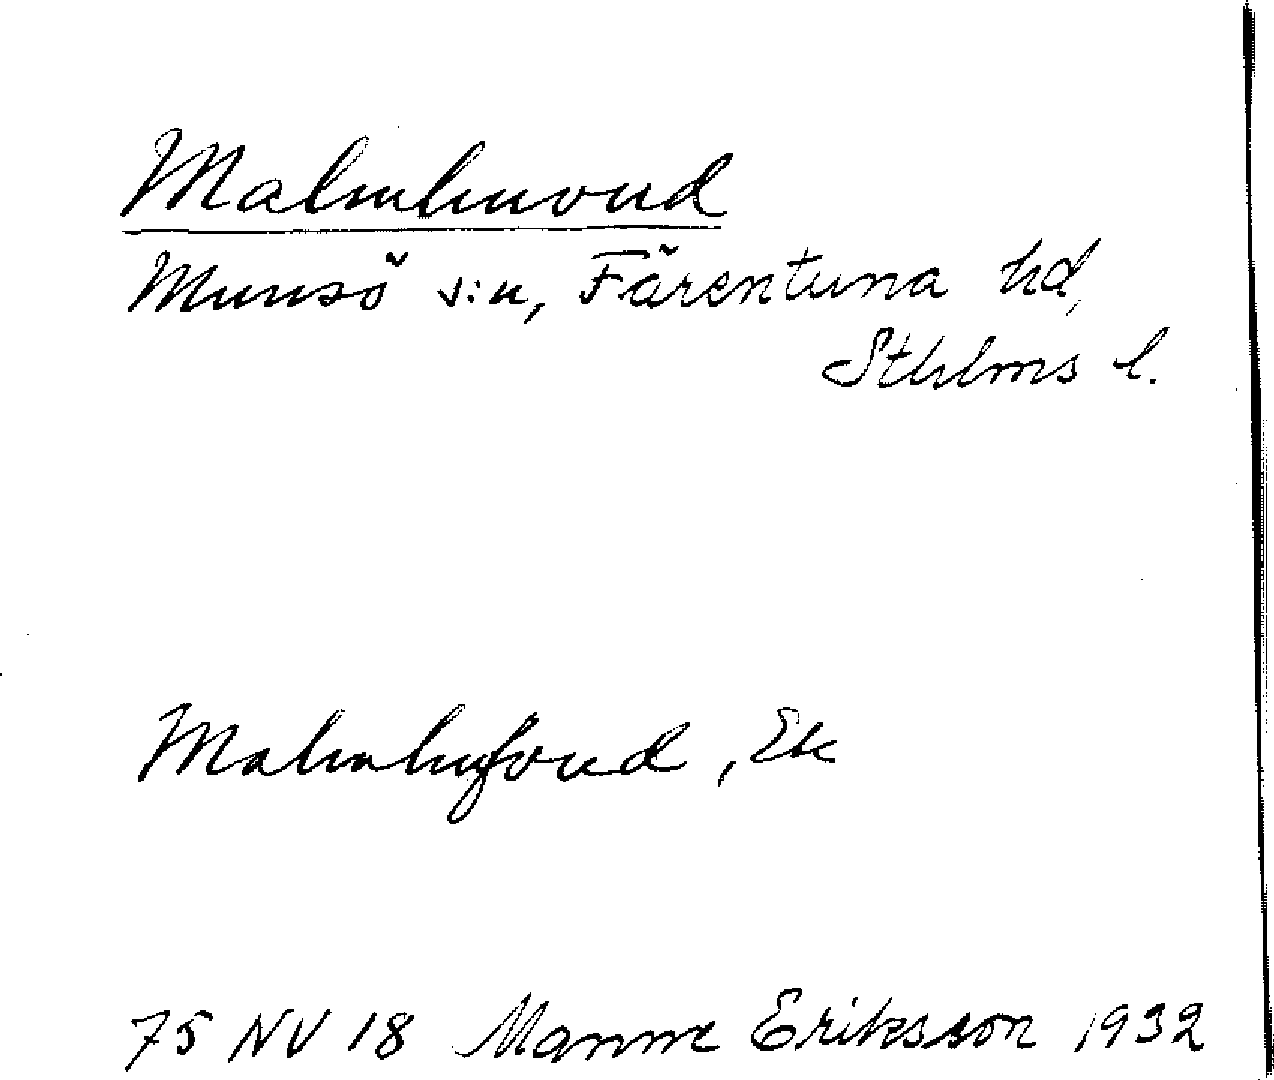 Malmhuvud
Munsö s:n, Färentuna hd,
Sthlms l.
Malmhufoud, Ek
75 NV 18 Manne Eriksson 1932